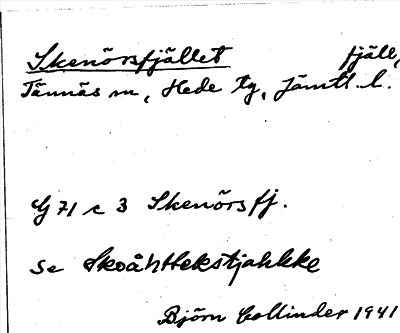 Skenörsfjället fjäll,
Tännäs sn, Hede tg, Jämtl. l.
G 71 c 3 Skenörsfj.
Se Skoåhttekstjahkke
Björn Collinder 1941